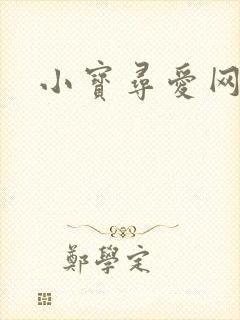 小寶尋愛网
鄭學定